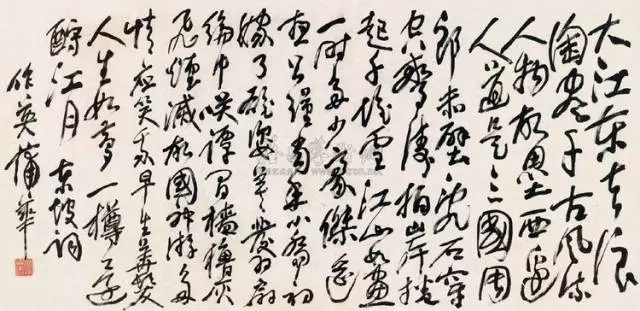 大江東去浪
淘盡千古風流
人物故壘西邊
人道是三國周
郎赤壁亂石穿
空驚濤拍岸捲
起千堆雪江山如畫
一時多少豪傑遙
想公瑾當年小喬初
嫁了雄姿英發羽扇
綸巾咲譚間檣櫓灰
飛煙滅故國神游多
情應笑我早生華髮
人生如夢一樽還
酹江月 東坡詞
作英蒲華